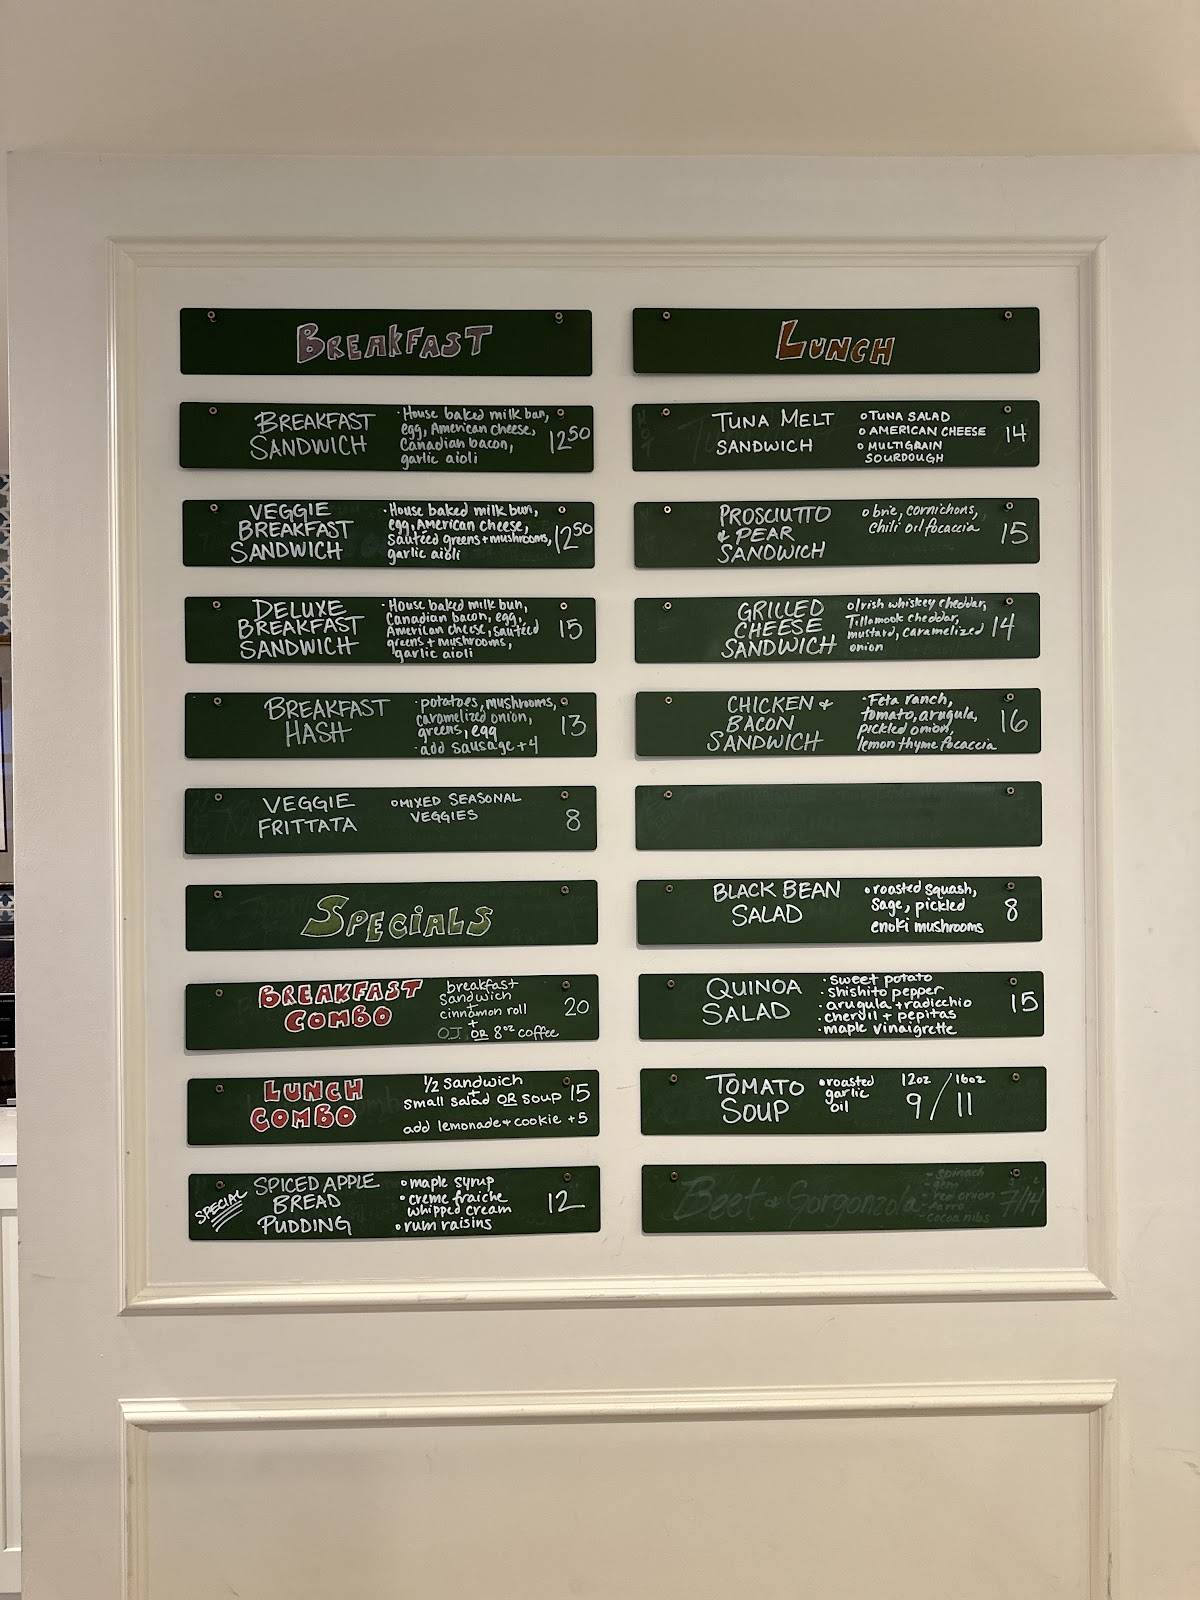 BREAKFAST
BREAKFAST
SANDWICH
· House baked milk bun,
egg, American cheese,
Canadian bacon,
garlic aioli
12 50
VEGGIE
BREAKFAST
SANDWICH
· House baked milk bun,
egg, American cheese,
Sautéed greens + mushrooms,
garlic aioli
12 50
DELUXE
BREAKFAST
SANDWICH
· House baked milk bun,
Canadian bacon, egg,
American cheese, sautéed
greens + mushrooms,
garlic aioli
15
BREAKFAST
HASH
· potatoes, mushrooms,
caramelized onion,
greens, egg
· add sausage +4
13
VEGGIE
FRITTATA
o MIXED SEASONAL
VEGGIES
8
SPECIALS
BREAKFAST
COMBO
breakfast
sandwich
+
cinnamon roll
+
O.J. OR 8oz coffee
20
LUNCH
COMBO
1/2 sandwich
+
small salad OR soup
add lemonade + cookie +5
15
SPECIAL
SPICED APPLE
BREAD
PUDDING
o maple syrup
• creme fraiche
whipped cream
o rum raisins
12
LUNCH
TUNA MELT
SANDWICH
o TUNA SALAD
o AMERICAN CHEESE
o MULTIGRAIN
SOURDOUGH
14
PROSCIUTTO
+ PEAR
SANDWICH
o brie, cornichons,
chili oil focaccia
15
GRILLED
CHEESE
SANDWICH
o Irish whiskey cheddar,
Tillamook cheddar,
mustard, caramelized
onion
14
CHICKEN +
BACON
SANDWICH
· Feta ranch,
tomato, arugula,
pickled onion,
lemon thyme focaccia
16
BLACK BEAN
SALAD
• roasted squash,
sage, pickled
enoki mushrooms
8
QUINOA
SALAD
· sweet potato
· shishito pepper
· arugula + radicchio
· chervil + pepitas
· maple vinaigrette
15
TOMATO
SOUP
• roasted
garlic
oil
12oz / 16oz
9 / 11
Beet + Gorgonzola
- spinach
- red onion
- farro
- cocoa nibs
7/14